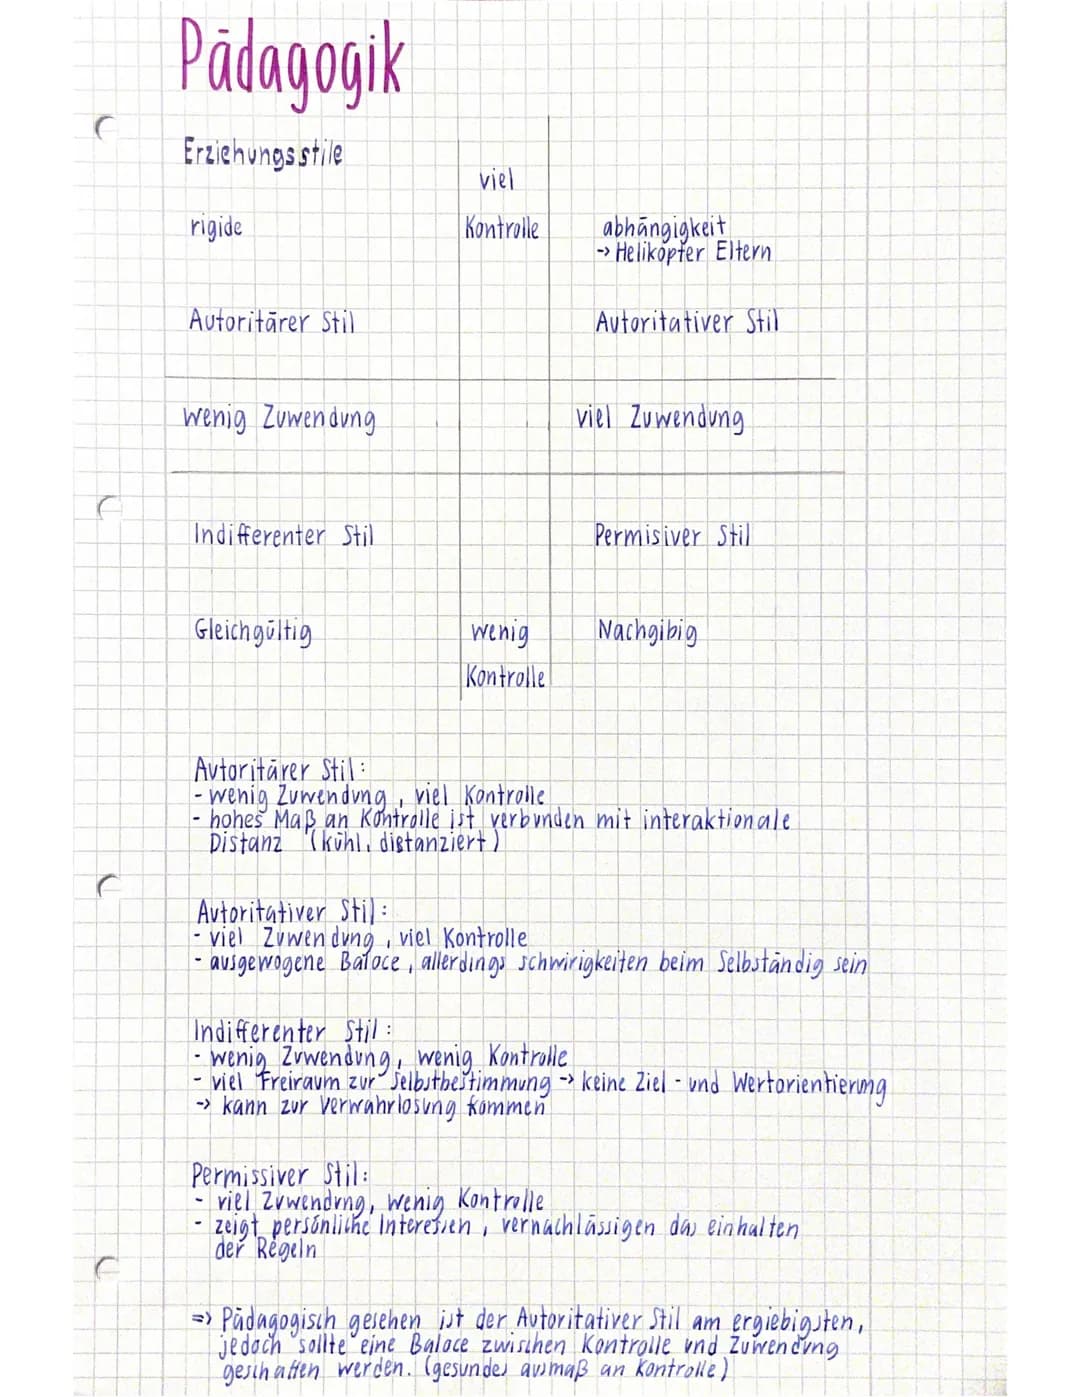 Pädagogik
Erziehungsstile
viel
rigide Kontrolle abhängigkeit
-> Helikopter Eltern
Autoritärer Stil Autoritativer Stil
wenig Zuwendung viel Zuwendung
Indifferenter Stil Permisiver Stil
Gleichgültig wenig Nachgibig
Kontrolle
Autoritärer Stil:
- wenig Zuwendung, viel Kontrolle
- hohes Maß an Kontrolle ist verbunden mit interaktionale
Distanz (kühl, distanziert)
Autoritativer Stil:
- viel Zuwendung, viel Kontrolle
- ausgewogene Balace, allerdings schwirigkeiten beim Selbständig sein
Indifferenter Stil:
- wenig Zuwendung, wenig Kontrolle
- viel Freiraum zur Selbstbestimmung -> keine Ziel- und Wertorientierung
-> kann zur Verwahrlosung kommen
Permissiver Stil:
- viel Zuwendung, wenig Kontrolle
- zeigt persönliche Interessen, vernachlässigen das einhalten
der Regeln
=> Pädagogisch gesehen ist der Autoritativer Stil am ergiebigsten,
jedoch sollte eine Balace zwischen Kontrolle und Zuwendung
geschaffen werden. (gesundes ausmaß an Kontrolle)